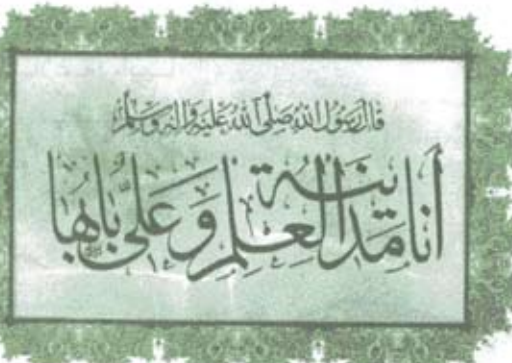 قال رسول الله صلى الله عليه واله وسلم
أنا مدينة العلم وعلي بابها